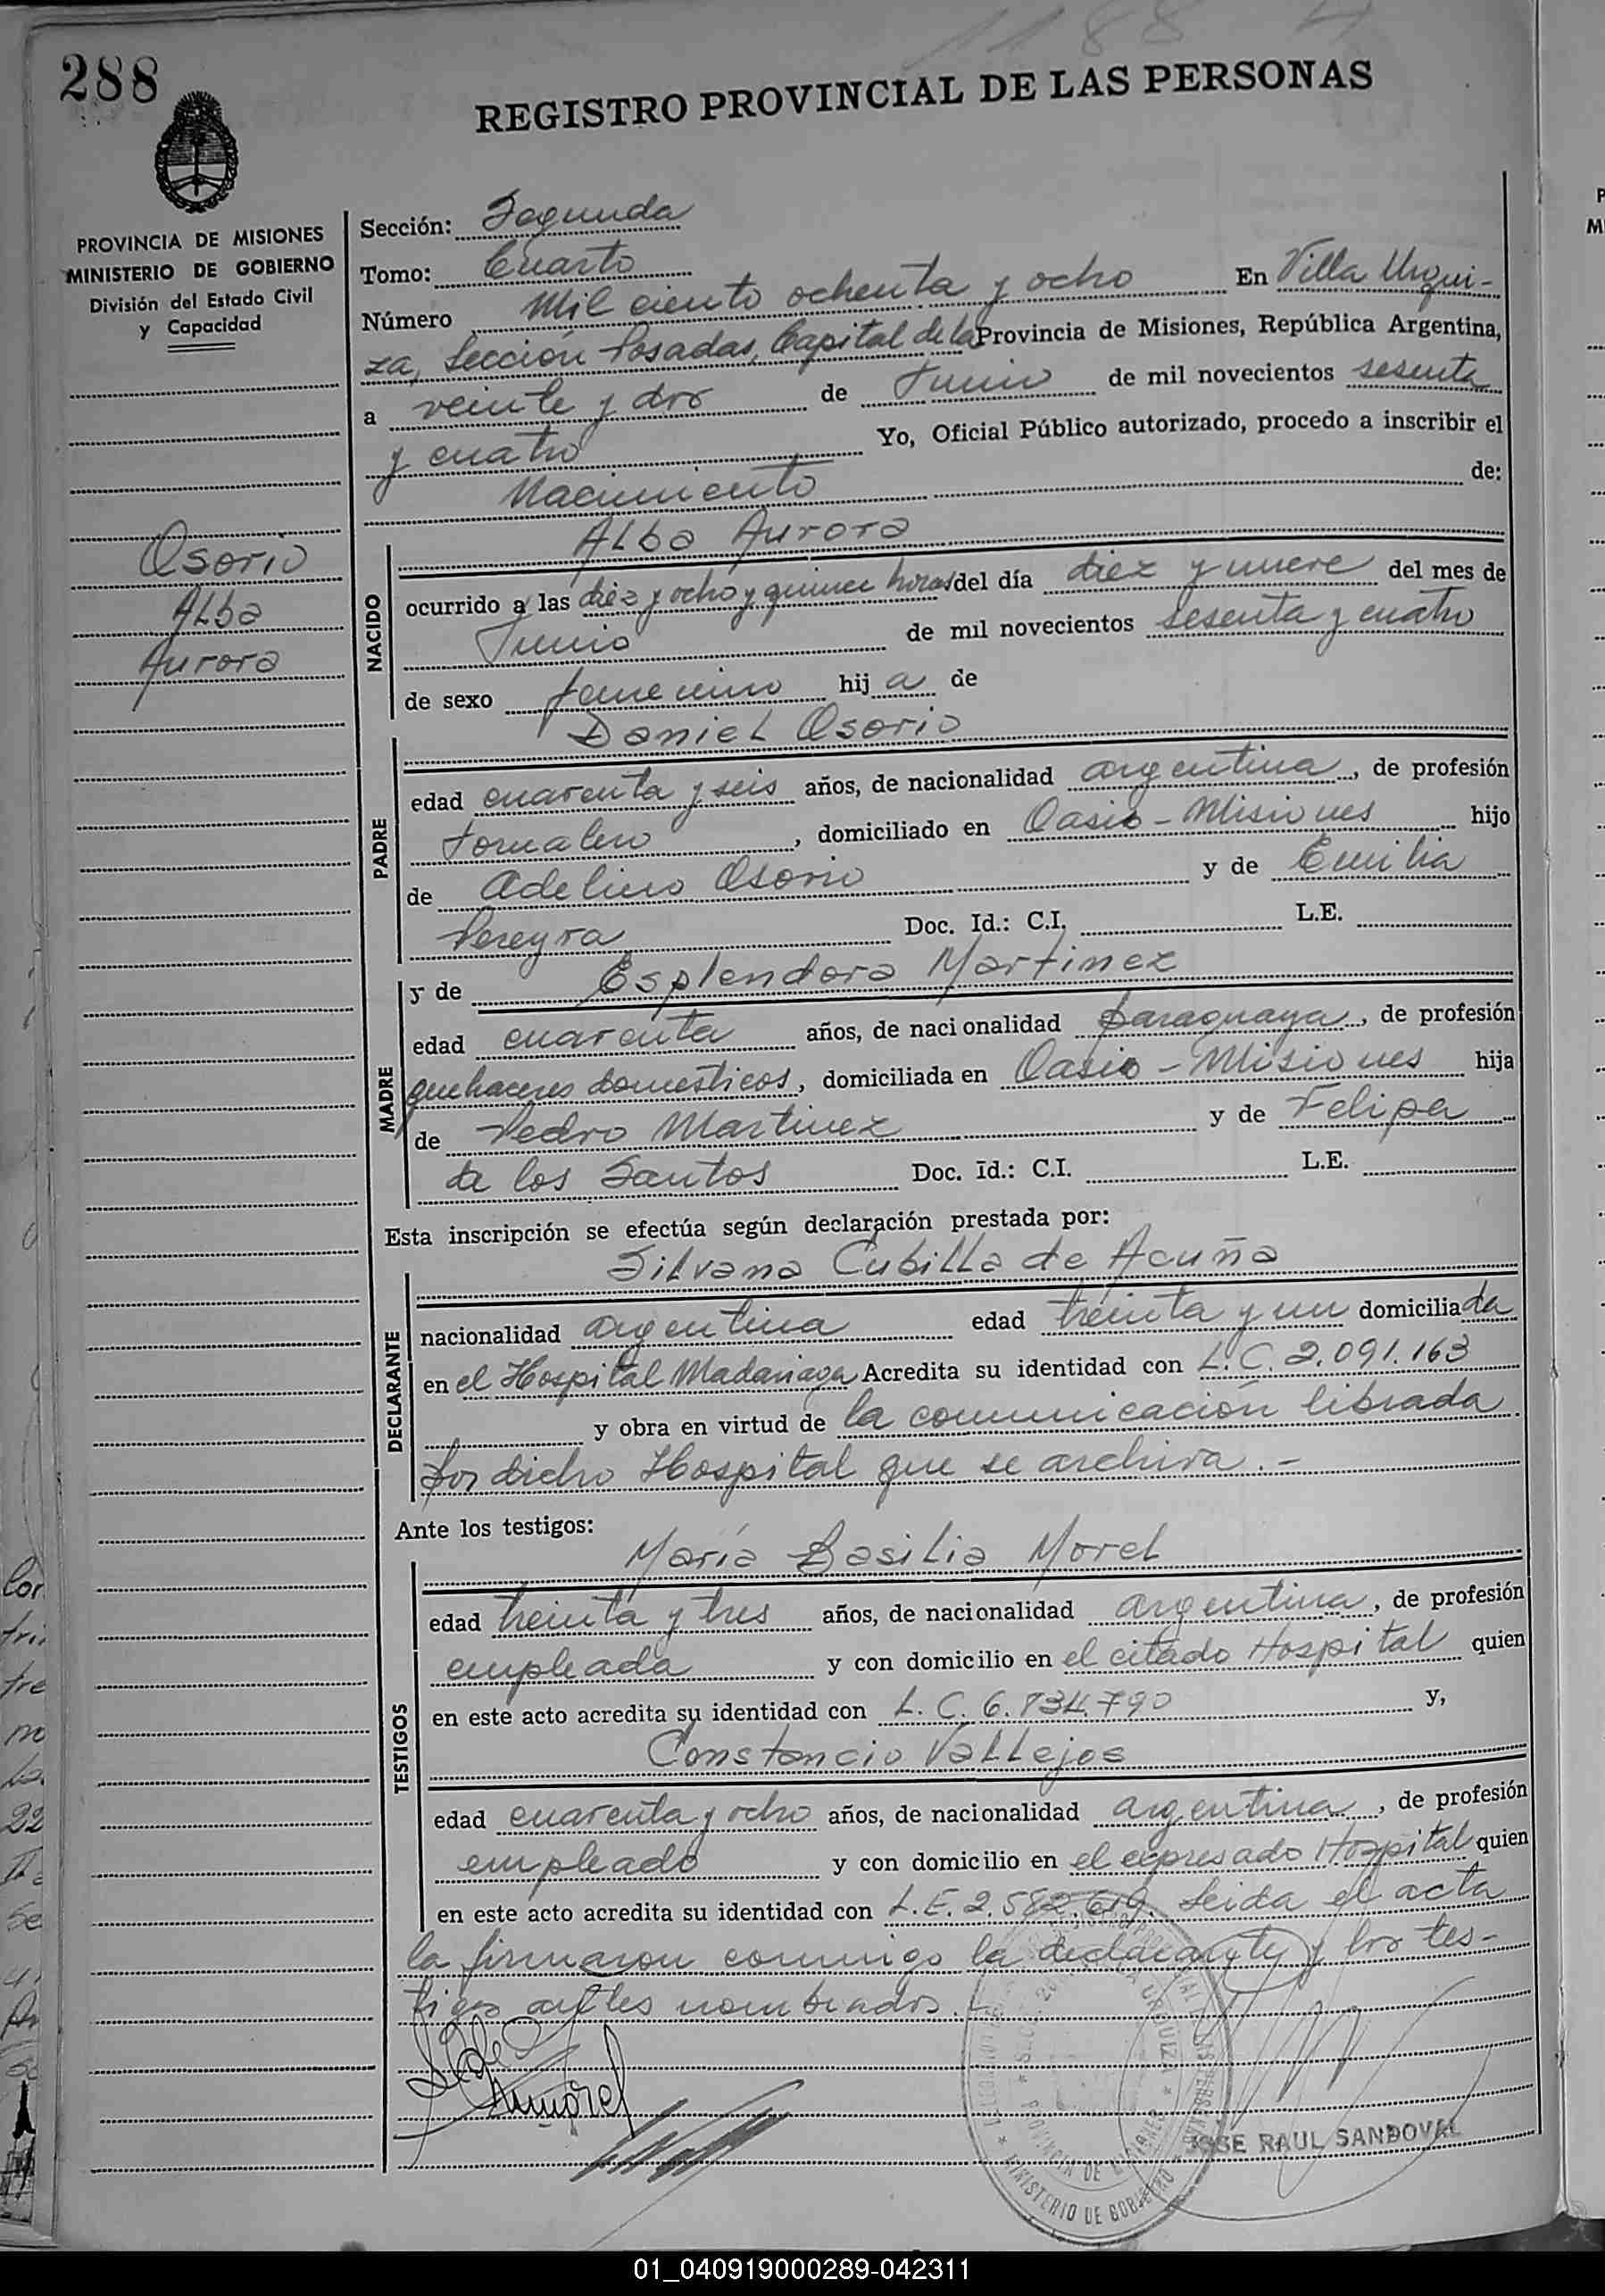 1188
288
REGISTRO PROVINCIAL DE LAS PERSONAS
PROVINCIA DE MISIONES
MINISTERIO DE GOBIERNO
División del Estado Civil
y Capacidad
Osorio
Alba
Aurora
Sección: Segunda
Tomo: Cuarto
Número Mil ciento ochenta y ocho En Villa Urqui-
za, Sección Posadas, Capital de la Provincia de Misiones, República Argentina,
a veinte y dos de Junio de mil novecientos sesenta
y cuatro Yo, Oficial Público autorizado, procedo a inscribir el
Nacimiento de:
NACIDO
Alba Aurora
ocurrido a las diez y ocho y quince horas del día diez y nueve del mes de
Junio de mil novecientos sesenta y cuatro
de sexo femenino hija de
PADRE
Daniel Osorio
edad cuarenta y seis años, de nacionalidad argentina, de profesión
Jornalero, domiciliado en Oasis - Misiones hijo
de Adelino Osorio y de Emilia
Pereyra Doc. Id.: C.I. L.E.
MADRE
y de Esplendora Martinez
edad cuarenta años, de nacionalidad paraguaya, de profesión
quehaceres domesticos, domiciliada en Oasis - Misiones hija
de Pedro Martinez y de Felipa
de los Santos Doc. Id.: C.I. L.E.
Esta inscripción se efectúa según declaración prestada por:
DECLARANTE
Silvana Cubilla de Acuña
nacionalidad argentina edad treinta y un domiciliada
en el Hospital Madariaga Acredita su identidad con L.C. 2.091.163
y obra en virtud de la comunicación librada
por dicho Hospital que se archiva.-
Ante los testigos:
TESTIGOS
María Basilia Morel
edad treinta y tres años, de nacionalidad argentina, de profesión
empleada y con domicilio en el citado Hospital quien
en este acto acredita su identidad con L.C. 6.834.790 y,
Constancio Vallejos
edad cuarenta y ocho años, de nacionalidad argentina, de profesión
empleado y con domicilio en el expresado Hospital quien
en este acto acredita su identidad con L.E. 2.582.619. Leida el acta
la firmaron conmigo la declarante y los tes-
tigos antes nombrados.-
JOSE RAUL SANDOVAL
PROVINCIA DE MISIONES
MINISTERIO DE GOBIERNO
01_040919000289-042311